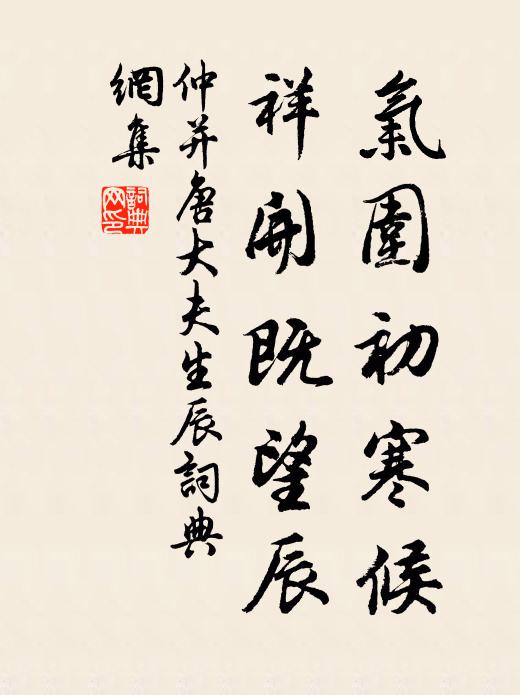 氣圍初寒候
祥開既望辰
仲并唐大夫生辰詞典
網集
詞典網印